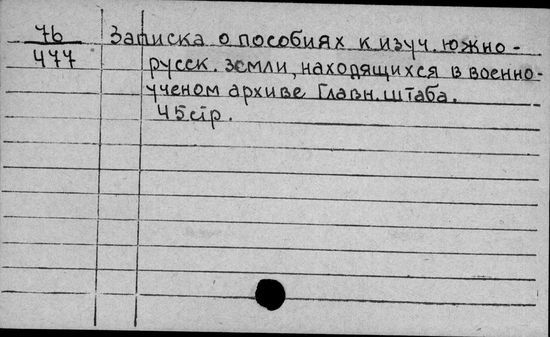 76 Записка о пособиях к изуч. южно-
477 русск. земли, находящихся в военно-
ученом архиве Главн. штаба.
45 стр.